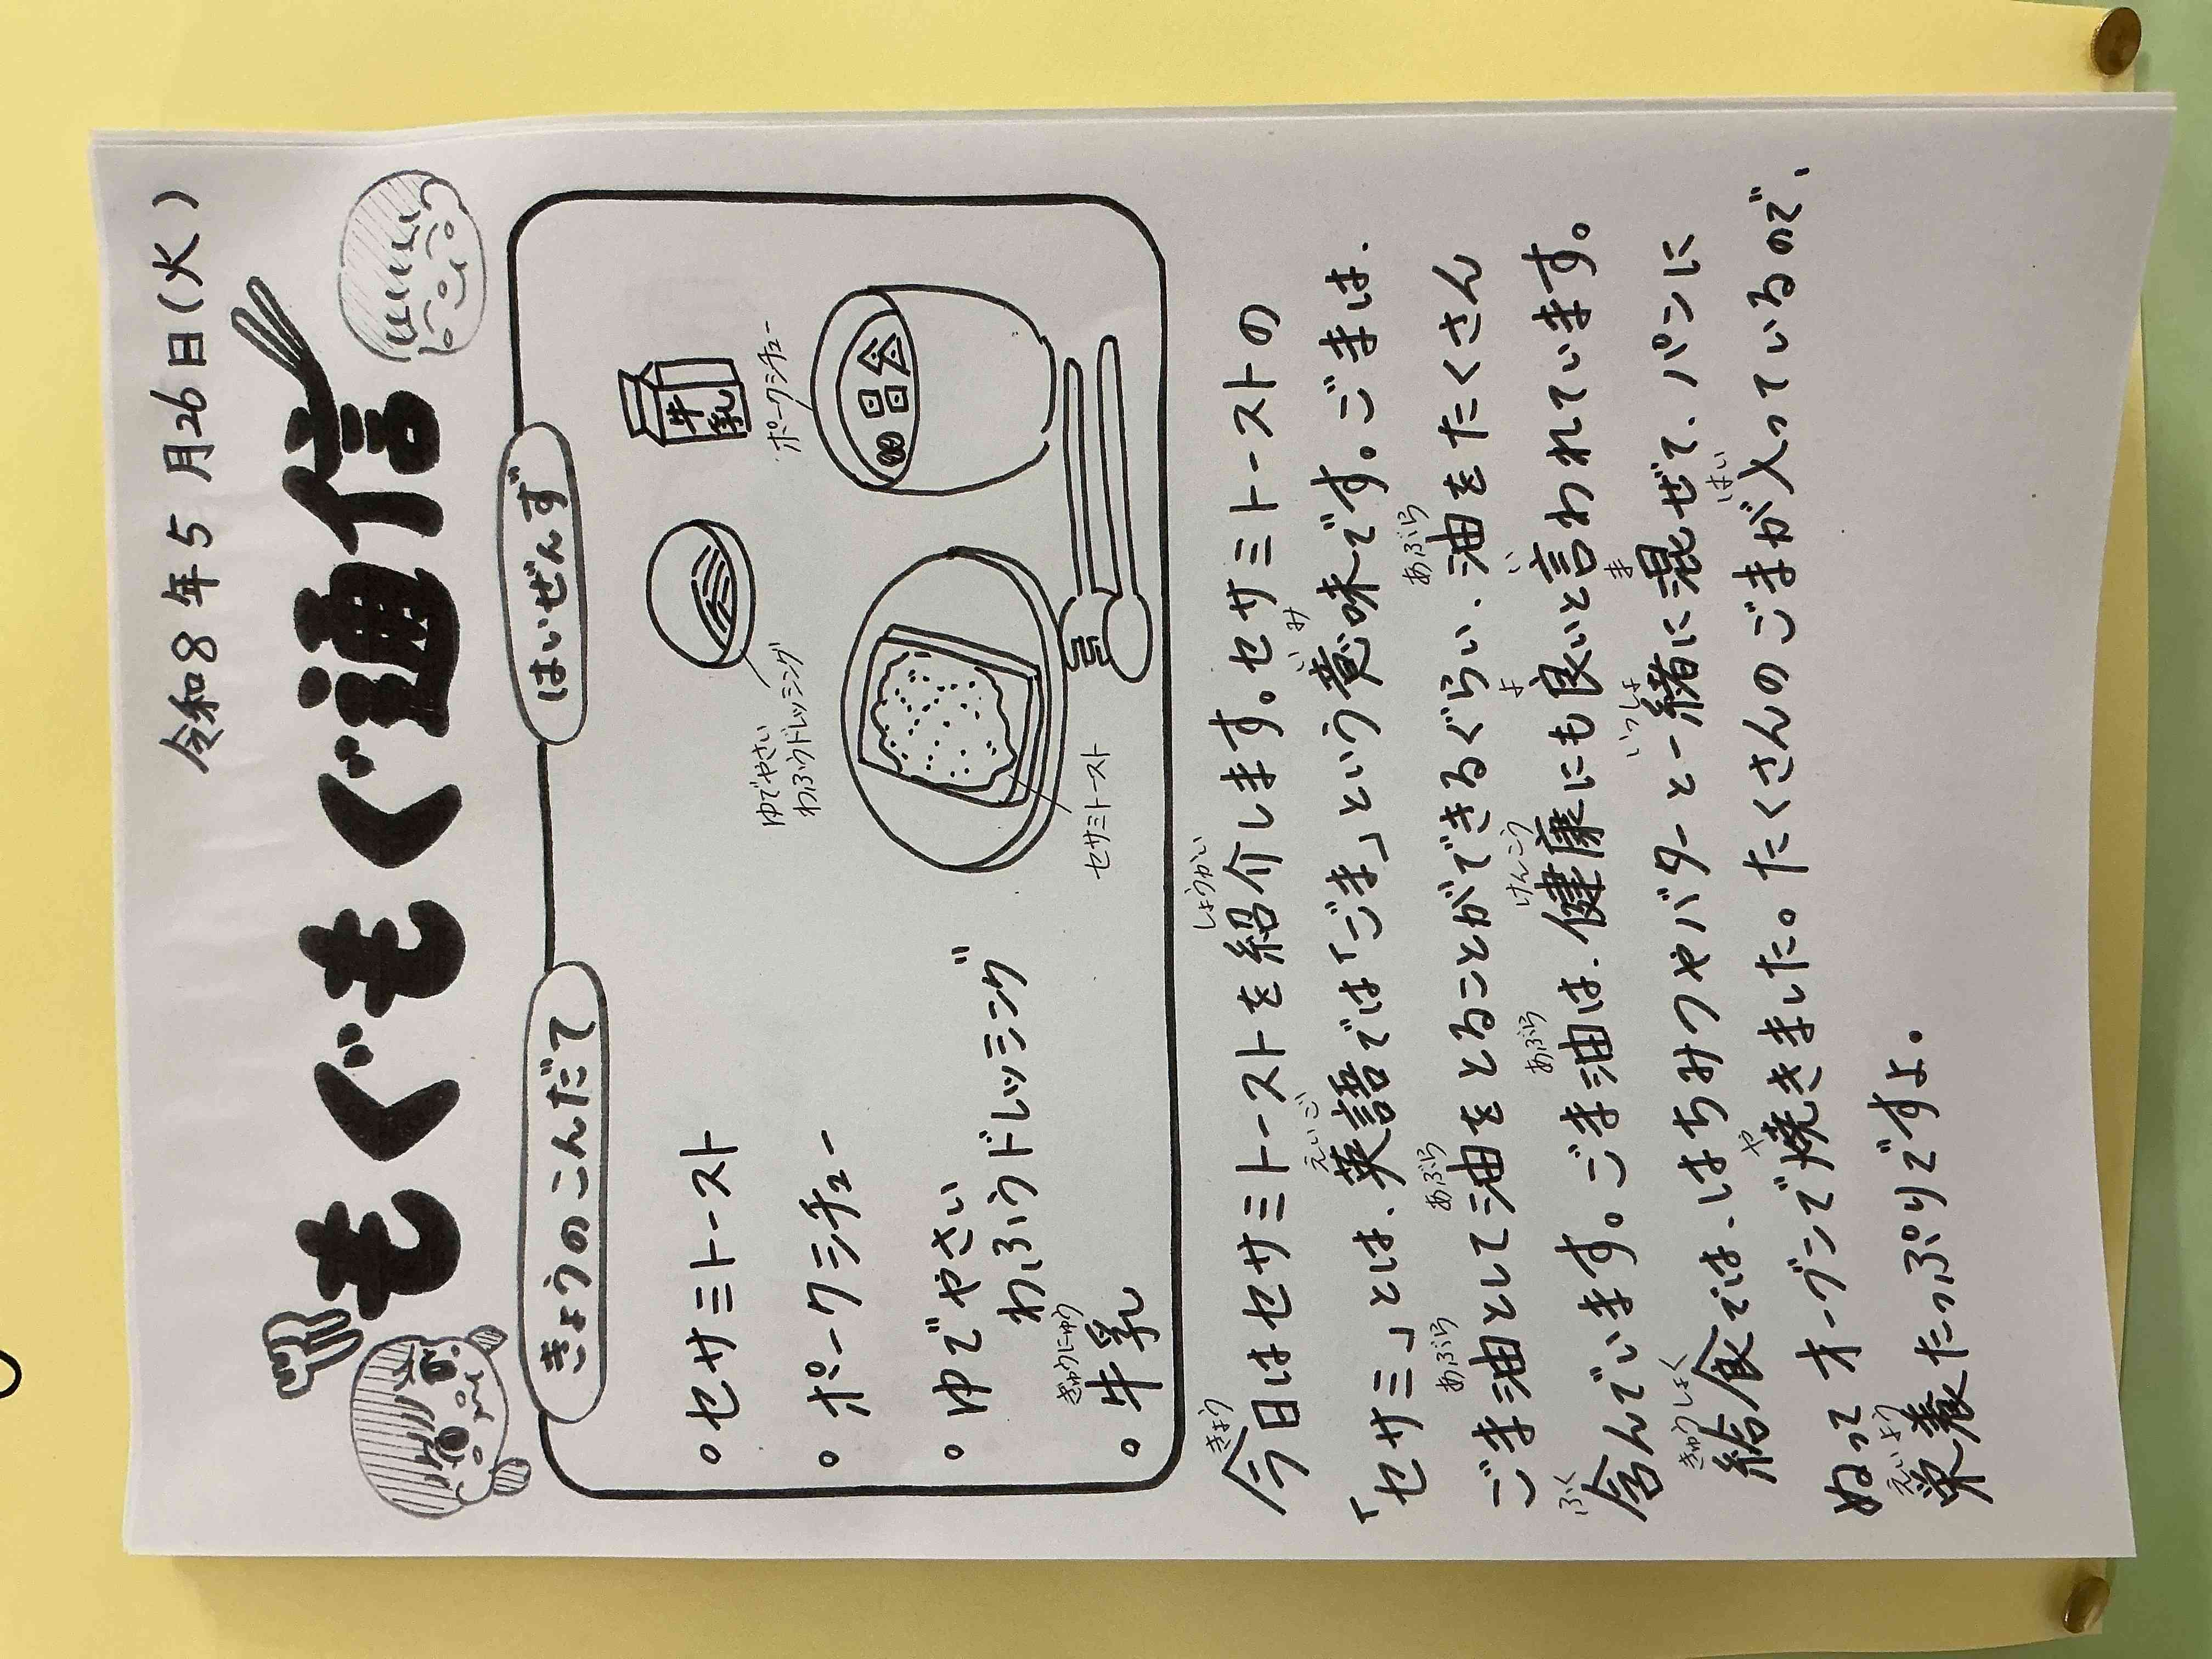 令和8年5月26日(火)
もぐもぐ通信
きょうのこんだて
はいぜんず
。セサミトースト
。ポークシチュー
。ゆでやさい
わふうドレッシング
ぎゅうにゅう
。牛乳
牛乳
ポークシチュー
ゆでやさい
わふうドレッシング
セサミトースト
きょう しょうかい
今日はセサミトーストを紹介します。セサミトーストの
えいご いみ
「セサミ」とは、英語では「ごま」という意味です。ごまは、
あぶら あぶら あぶら
ごま油として油をとることができるぐらい、油をたくさん
ふく あぶら けんこう よ い
含んでいます。ごま油は、健康にも良いと言われています。
きゅうしょく いっしょ ま
給食では、はちみつやバターと一緒に混ぜて、パンに
や はい
ぬってオーブンで焼きました。たくさんのごまが入っているので、
えいよう
栄養たっぷりですよ。